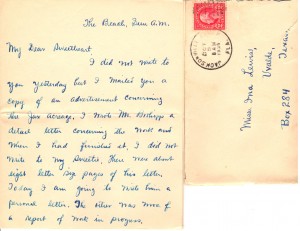 The Beach, 7am A.M.
My Dear Sweetheart
I did not write to
you Yesterday but I Mailed You a
copy of an advertisement concerning
the Jax acreage. I wrote Mr.
detail letter concerning the work and
When I had finished it, I did not
Write to my Sweetie. There was about
eight letter size pages of this letter.
Today I am going to write him a
personal letter. The other was more of
a report of work in progress.
JACKSONVILLE
FLA.
Miss Ina Lewis,
Uvalde,
Box 284 Texas